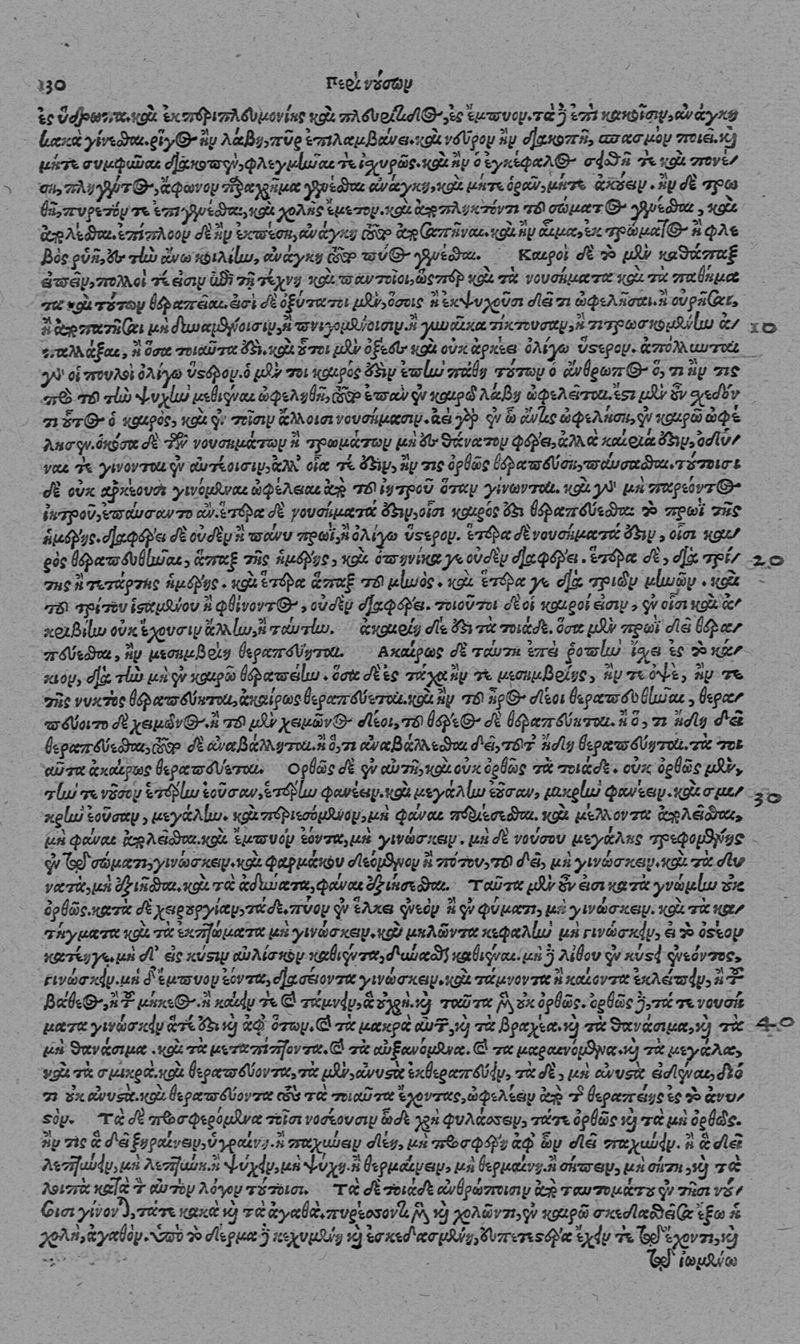 130 Περὶ νούσων
ἐς ὕδρωπα. καὶ ἐκ περιπλευμονίης καὶ πλευρίτιδος, ἐς ἔμπυον. τὰ δὲ ἐπὶ κακοῖσιν, ἀνάγκῃ
κακὰ γίνεσθαι. ῥῖγος ἢν λάβῃ, πῦρ ἐπιλαμβάνει. καὶ νεῦρον ἢν διακοπῇ, σπασμὸν ποιεῖ. καὶ
μήτε συμφῦναι διακοπὲν, φλεγμῆναί τε ἰσχυρῶς. καὶ ἢν ὁ ἐγκέφαλος σεισθῇ τε καὶ πονέ/
σῃ, πληγέντος, ἄφωνον παραχρῆμα γενέσθαι ἀνάγκη, καὶ μήτε ὁρᾶν, μήτε ἀκούειν. ἢν δὲ τρω
θῇ, πυρετόν τε ἐπιγενέσθαι, καὶ χολῆς ἔμετον. καὶ ἀπόπληκτόν τι τοῦ σώματος γενέσθαι, καὶ
ἀπολέσθαι. ἐπίπλοον δὲ ἢν ἐκπέσῃ, ἀνάγκη τοῦτο ἀποσαπῆναι. καὶ ἢν αἷμα, ἐκ τρώματος ἢ φλε
βὸς ῥυῇ, ἐς τὴν ἄνω κοιλίην, ἀνάγκη τοῦτο πῦος γενέσθαι. Καιροὶ δὲ τὸ μὲν καθάπαξ
εἰπεῖν, πολλοί τέ εἰσιν ἐν τῇ τέχνῃ καὶ παντοῖοι, ὥσπερ καὶ τὰ νουσήματα καὶ τὰ παθήμα
τα καὶ τούτων θεραπεῖαι. εἰσὶ δὲ ὀξύτατοι μὲν, ὅσοις ἢ ἐκψύχουσι δεῖ τι ὠφελῆσαι. ἢ οὐρῆσαι,
ἢ ἀποπατῆσαι μὴ δυναμένοισιν, ἢ πνιγομένοισιν. ἢ γυναῖκα τίκτουσαν, ἢ τιτρωσκομένην ἀ/ 10
παλλάξαι, ἢ ὅσα τοιαῦτά ἐστι. καὶ οὗτοι μὲν ὀξέες καὶ οὐκ ἀρκέει ὀλίγῳ ὕστερον. ἀπόλλυνται
γὰρ οἱ πουλοὶ ὀλίγῳ ὕστερον. ὁ μέν τοι καιρός ἐστιν ἐπὴν πάθῃ τούτων ὁ ἄνθρωπος ὅ, τι ἤν τις
πρὸ τοῦ τὴν ψυχὴν μεθιέναι ὠφελήσῃ, τοῦτο ἐπὰν ἐν καιρῷ λάβῃ ὠφελεῖται. ἔστι μὲν οὖν σχεδόν
τι οὗτος ὁ καιρὸς, καὶ ἐν τοῖσιν ἄλλοισι νουσήμασιν. αἰεὶ γὰρ ἐν ᾧ ἄν τις ὠφελήσῃ, ἐν καιρῷ ὠφέ
λησεν. ὁκόσα δὲ τῶν νουσημάτων ἢ τρωμάτων μὴ ἐς θάνατον φέρει, ἀλλὰ καίριά ἐστιν, ὀδύν/
ναι τε γίνονται ἐν αὐτέοισιν, ἀλλ' οἷά τέ ἐστιν, ἤν τις ὀρθῶς θεραπεύσῃ, παύσασθαι. τούτοισι
δὲ οὐκ ἀρκέουσι γινόμεναι ὠφέλειαι ἀπὸ τοῦ ἰητροῦ ὅταν γίνωνται. καὶ γὰρ μὴ παρεόντος
ἰητροῦ, ἐπαύσαντο ἄν. ἕτερα δὲ νουσήματά ἐστιν, οἷσι καιρός ἐστι θεραπεύεσθαι τὸ πρωῒ τῆς
ἡμέρης. διαφέρει δὲ οὐδὲν ἢ πάνυ πρωῒ, ἢ ὀλίγῳ ὕστερον. ἕτερα δὲ νουσήματά ἐστιν, οἷσι και/
ρὸς θεραπευθῆναι, ἅπαξ τῆς ἡμέρης, καὶ ὁπηνίκα γε οὐδὲν διαφέρει. ἕτερα δὲ, διὰ τρί/ 20
της ἢ τετάρτης ἡμέρης. καὶ ἕτερα ἅπαξ τοῦ μηνός. καὶ ἕτερά γε διὰ τριῶν μηνῶν. καὶ
τοῦ τρίτου ἱσταμένου ἢ φθίνοντος, οὐδὲν διαφέρει. τοιοῦτοι δὲ οἱ καιροί εἰσιν, ἐν οἷσι καὶ ἀ/
κριβίην οὐκ ἔχουσιν ἄλλην, ἢ ταύτην. ἀκαιρίη δέ ἐστι τὰ τοιάδε. ὅσα μὲν πρωῒ δεῖ θερα/
πεύεσθαι, ἢν μεσημβρίῃ θεραπεύηται. Ἀκαίρως δὲ ταύτῃ ἐπεὶ ῥοπὴν ἴσχει ἐς τὸ κά/
κιον, διὰ τὴν μὴ ἐν καιρῷ θεραπείην. ὅσα δὲ ἐς τάχα ἤν τε μεσημβρίης, ἤν τε ὀψὲ, ἤν τε
τῆς νυκτὸς θεραπεύηται, ἀκαίρως θεραπεύεται. καὶ ἢν τοῦ ἦρος δέοι θεραπευθῆναι, θερα/
πεύοιτο δὲ χειμῶνος. ἢ τοῦ μὲν χειμῶνος δέοι, τοῦ θέρεος δὲ θεραπεύηται. ἢ ὅ, τι ἤδη δεῖ
θεραπεύεσθαι, τοῦτο δὲ ἀναβάλληται. ἢ ὅ, τι ἀναβάλλεσθαι δεῖ, τοῦτο ἤδη θεραπεύηται. τὰ τοι
αῦτα ἀκαίρως θεραπεύεται. Ὀρθῶς δὲ ἐν αὐτῇ, καὶ οὐκ ὀρθῶς τὰ τοιάδε. οὐκ ὀρθῶς μὲν,
τήν τε νοῦσον ἑτέρην ἐοῦσαν, ἑτέρην φανέειν. καὶ μεγάλην ἐοῦσαν, μικρὴν φανέειν. καὶ σμι/ 30
κρὴν ἐοῦσαν, μεγάλην. καὶ περιεσόμενον, μὴ φάναι περιέσεσθαι. καὶ μέλλοντα ἀπολέεσθαι,
μὴ φάναι ἀπολέεσθαι. καὶ ἔμπυον ἐόντα, μὴ γινώσκειν. μὴ δὲ νούσου μεγάλης τρεφομένης
ἐν τῷ σώματι, γινώσκειν. καὶ φαρμάκου δεόμενον ἢ πότου, τοῦ δεῖ, μὴ γινώσκειν. καὶ τὰ δυ
νατὰ, μὴ ἐξιῆσθαι. καὶ τὰ ἀδύνατα, φάναι ἐξιήσεσθαι. Ταῦτα μὲν οὖν εἰσι κατὰ γνώμην οὐκ
ὀρθῶς. κατὰ δὲ χειρουργίαν, τάδε. πύον ἐν ἕλκει ἐνεὸν ἢ ἐν φύματι, μὴ γινώσκειν. καὶ τὰ κα/
τήγματα καὶ τὰ ἐκπτώματα μὴ γινώσκειν. καὶ μηλῶντα κεφαλὴν μὴ γινώσκειν, εἰ τὸ ὀστέον
κατέηγε. μὴ δ' εἰς κύστιν αὐλίσκον καθιέντα, δύνασθαι καθιέναι. μὴ δὲ λίθου ἐν κύστει ἐνεόντος,
γινώσκειν. μὴ δ' ἔμπυον ἐόντα, διασείοντα γινώσκειν. καὶ τάμνοντα ἢ καίοντα ἐκλείπειν, ἢ τοῦ
βάθεος, ἢ τοῦ μήκεος. ἢ καίειν τε καὶ τάμνειν, ἃ οὐ χρή. καὶ ταῦτα μὲν οὐκ ὀρθῶς. ὀρθῶς δὲ, τά τε νουσή
ματα γινώσκειν ἅ τέ ἐστι καὶ ἀφ' ὅτων. καὶ τὰ μακρὰ αὐτῶν, καὶ τὰ βραχέα. καὶ τὰ θανάσιμα, καὶ τὰ 40
μὴ θανάσιμα. καὶ τὰ μεταπίπτοντα. καὶ τὰ αὐξανόμενα. καὶ τὰ μαραινόμενα. καὶ τὰ μεγάλα,
καὶ τὰ σμικρά. καὶ θεραπεύοντα, τὰ μὲν, ἀνυστὰ ἐκθεραπεύειν, τὰ δὲ, μὴ ἀνυστὰ εἰδέναι, διό
τι οὐκ ἀνυστά. καὶ θεραπεύοντα τοὺς τὰ τοιαῦτα ἔχοντας, ὠφελέειν ἀπὸ τῆς θεραπείης ἐς τὸ ἀνυ/
στόν. Τὰ δὲ προσφερόμενα τοῖσι νοσέουσιν ὧδε χρὴ φυλάσσειν, τά τε ὀρθῶς καὶ τὰ μὴ ὀρθῶς.
ἤν τις ἃ δεῖ ξηραίνειν, ὑγραίνῃ. ἢ παχύνειν δέῃ, μὴ προσφέρῃ ἀφ' ὧν δεῖ παχύνειν. ἢ ἃ δεῖ
λεπτύνειν, μὴ λεπτύνῃ. ἢ ψύχειν, μὴ ψύχῃ. ἢ θερμαίνειν, μὴ θερμαίνῃ. ἢ σήπειν, μὴ σήπῃ, καὶ τὰ
λοιπὰ κατὰ τὸν αὐτὸν λόγον τούτοισι. Τὰ δὲ τοιάδε ἀνθρώποισιν ἀπὸ ταυτομάτου ἐν τῇσι νού/
σοισι γίνονται, τά τε κακὰ καὶ τὰ ἀγαθά. πυρέσσοντι μὲν καὶ χολῶντι, ἐν καιρῷ σκεδασθεῖσα ἔξω ἡ
χολὴ, ἀγαθόν. ὑπὸ τὸ δέρμα δὲ κεχυμένη καὶ ἐσκεδασμένη, εὐπετεστέρα ἔχειν τε τῷ ἔχοντι, καὶ
τῷ ἰωμένῳ